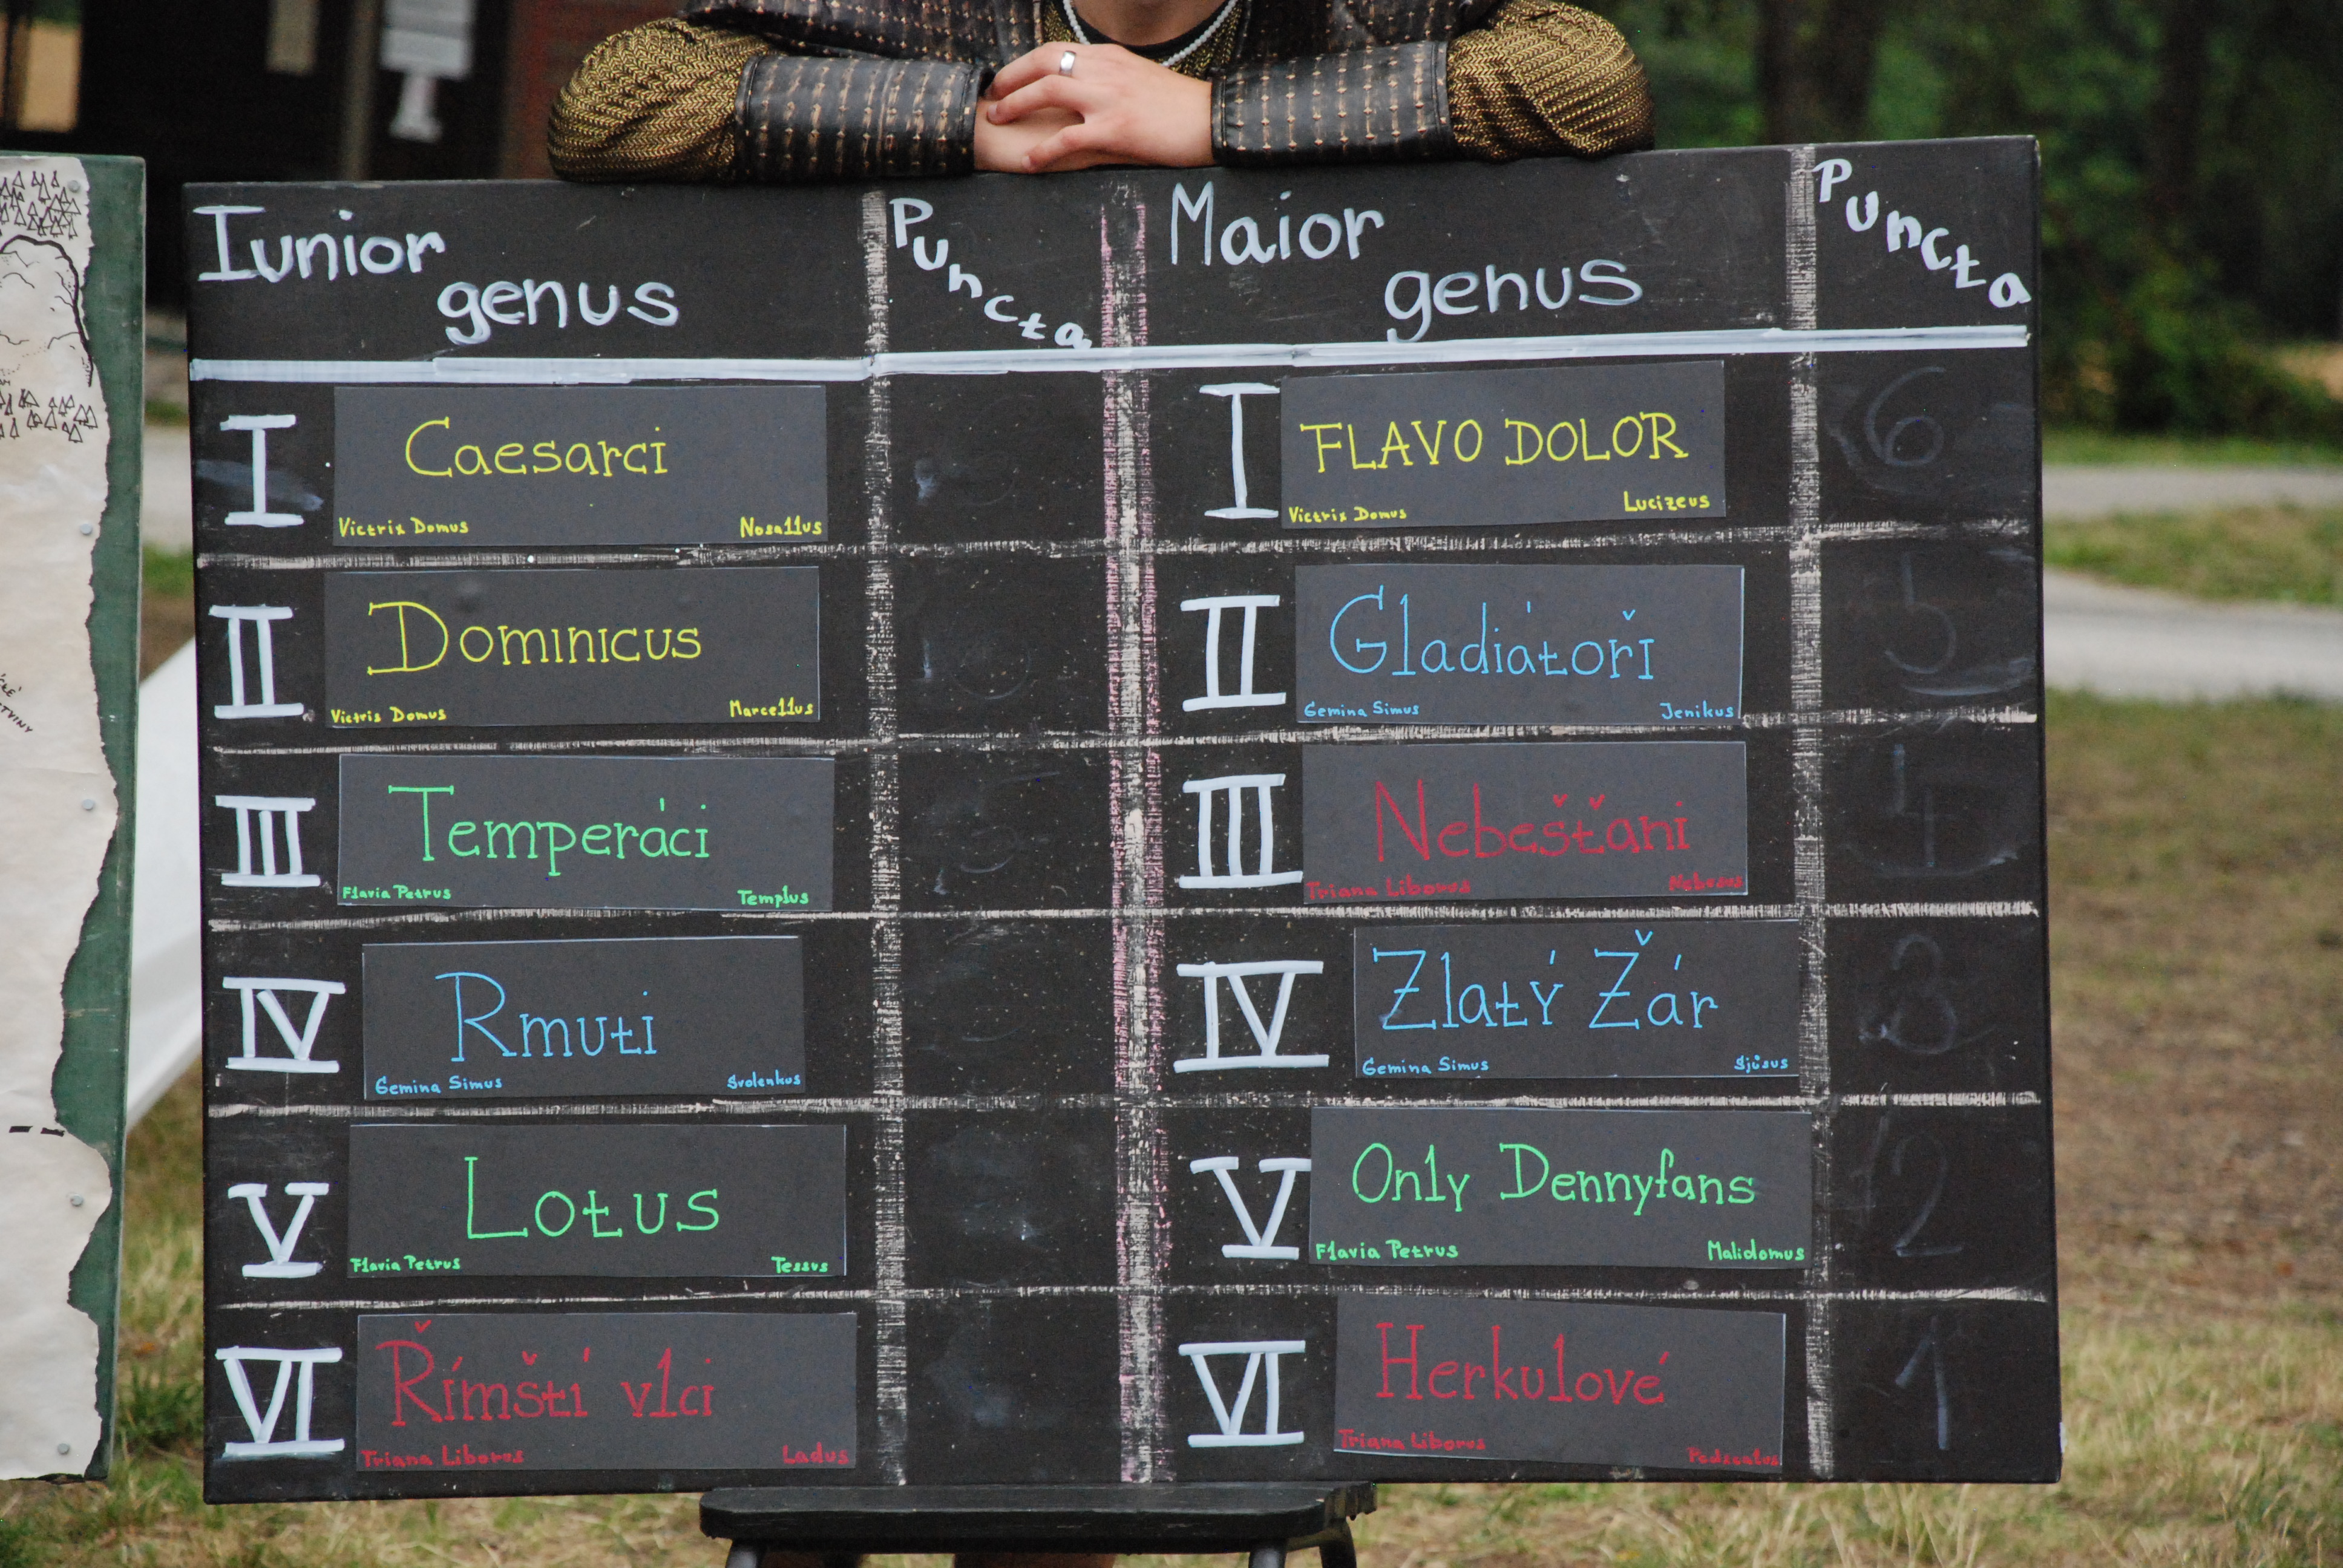 Iunior genus
Puncta
Maior genus
Puncta
I
Caesarci
Victrix Domus
Nosallus
I
FLAVO DOLOR
Victrix Domus
Lucizeus
6
II
Dominicus
Victris Domus
Marcellus
II
Gladiátoři
Gemina Simus
Jenikus
5
III
Temperáci
Flavia Petrus
Templus
III
Nebešťani
Triana Liborus
4
IV
Rmuti
Gemina Simus
IV
Zlatý Žár
Gemina Simus
3
V
Lotus
Flavia Petrus
Tessus
V
Only Dennyfans
Flavia Petrus
Malidomus
2
VI
Římští vlci
Triana Liborus
Ladus
VI
Herkulové
Triana Liborus
1